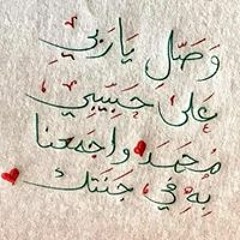 وَصَلِّ يَا رَبِي
عَلىٰ حَبَيبِي
مُحَمَد وَاجمَعنَا
بِهِ فِي جَنَتك